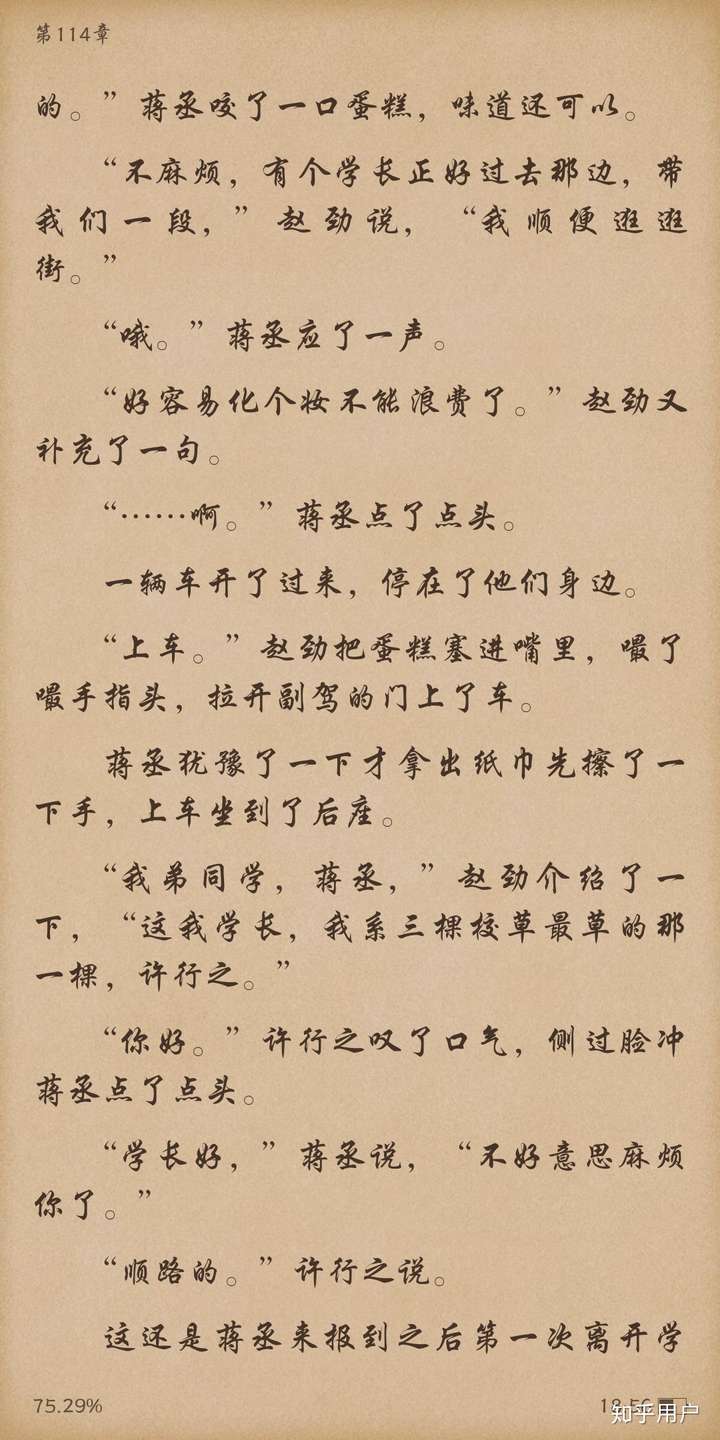 第114章
的。”蒋丞咬了一口蛋糕，味道还可以。
“不麻烦，有个学长正好过去那边，带
我们一段，”赵劲说，“我顺便逛逛
街。”
“哦。”蒋丞应了一声。
“好容易化个妆不能浪费了。”赵劲又
补充了一句。
“……啊。”蒋丞点了点头。
一辆车开了过来，停在了他们身边。
“上车。”赵劲把蛋糕塞进嘴里，嘬了
嘬手指头，拉开副驾的门上了车。
蒋丞犹豫了一下才拿出纸巾先擦了一
下手，上车坐到了后座。
“我弟同学，蒋丞，”赵劲介绍了一
下，“这我学长，我系三棵校草最草的那
一棵，许行之。”
“你好。”许行之叹了口气，侧过脸冲
蒋丞点了点头。
“学长好，”蒋丞说，“不好意思麻烦
你了。”
“顺路的。”许行之说。
这还是蒋丞来报到之后第一次离开学
75.29%
18:56
知乎用户